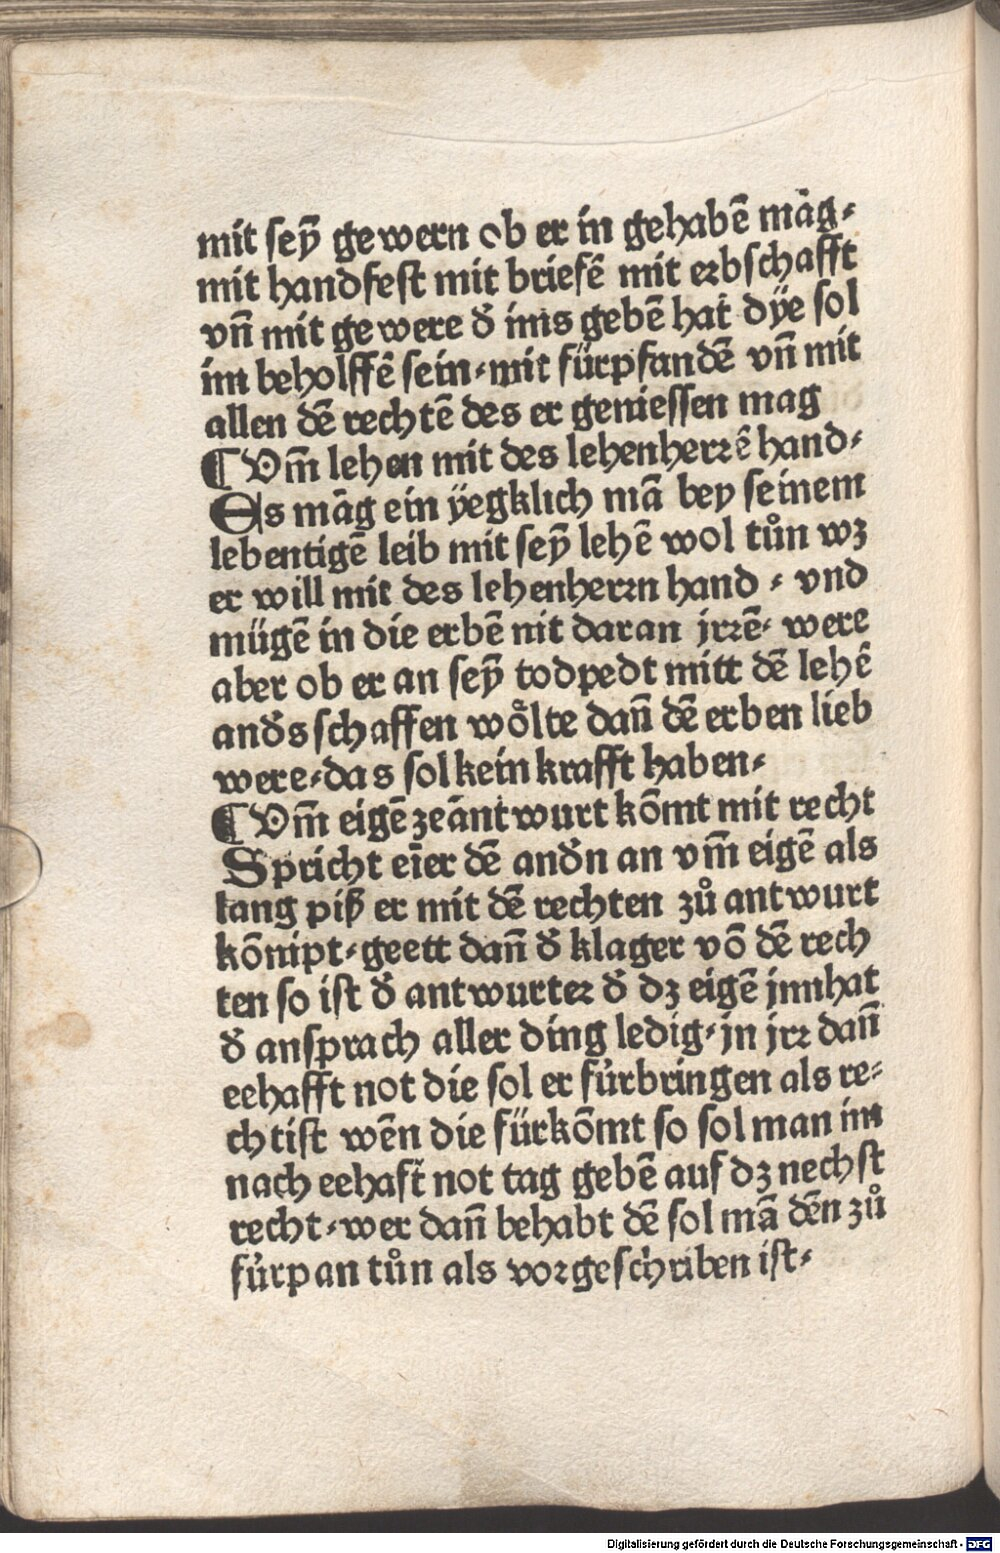 mit sey̅ gewern ob er in gehabē māg⸗
mit handfest mit briefē mit erbschafft
vn̄ mit gewere d̄ imꝭ gebē hat dÿe sol
im beholffē sein⸗mit fürpfandē vn̄ mit
allen dē rechtē des er geniessen mag
¶ Vm̄ lehen mit des lehenherrē hand⸗
Es māg ein ÿegklich mā bey seinem
lebentigē leib mit sey̅ lehē wol tůn wz
er will mit des lehenherrn hand ⸗ vnd
mügē in die erbē nit daran jrrē⸗ were
aber ob er an sey̅ todpedt mitt dē lehē
and̄s schaffen wo̊lte dan̄ dē erben lieb
were⸗das sol kein krafft haben⸗
¶ Vm̄ eigē zeāntwurt kōmt mit recht
Spricht eīer dē and̄n an vm̄ eigē als
lang piß er mit dē rechten zů antwurt
kōmpt⸗geett dan̄ d̄ klager vō dē rech
ten so ist d̄ antwurter d̄ dz eigē jnnhat
d̄ ansprach aller ding ledig⸗jn jrr dan̄
eehafft not die sol er fürbringen als re⸗
cht ist wēn die fürkōmt so sol man im
nach eehaft not tag gebē auf dz nechst
recht⸗wer dan̄ behabt dē sol mā dēn zů
fürpan tůn als vorgeschriben ist⸗
Digitalisierung gefördert durch die Deutsche Forschungsgemeinschaft - DFG